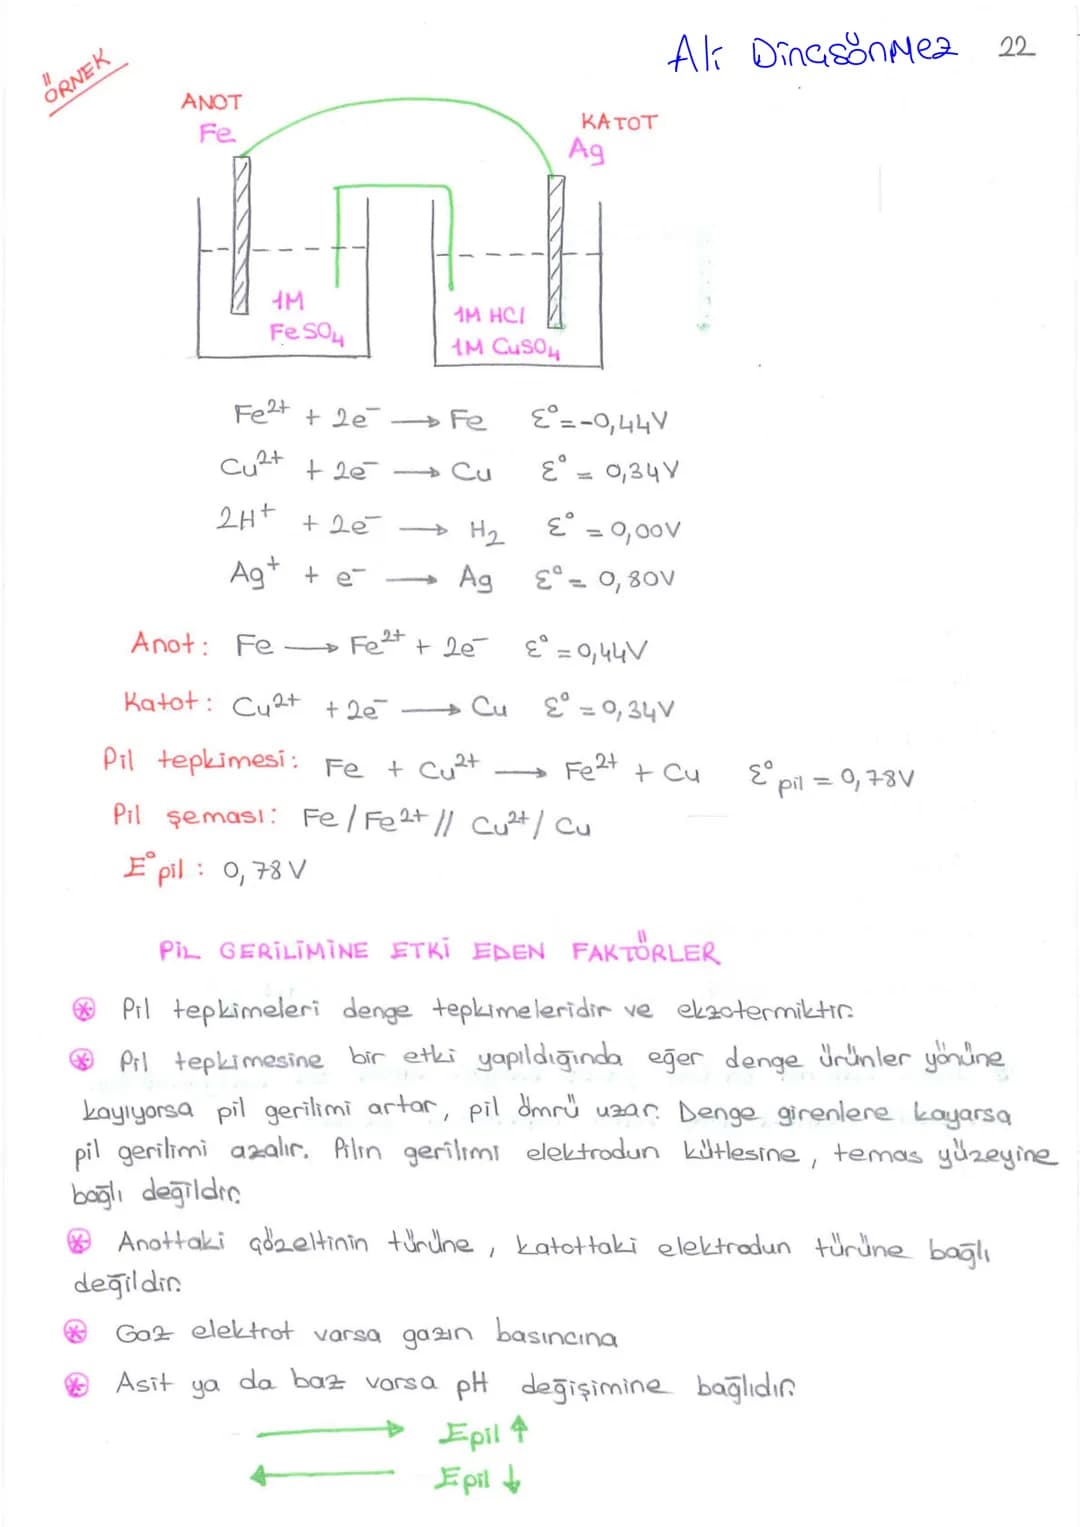 Ali Dinçsönmez 22
ÖRNEK
ANOT
Fe
KATOT
Ag
1M
FeSO₄
1M HCl
1M CuSO₄
Fe²⁺ + 2e⁻ → Fe ε° = -0,44V
Cu²⁺ + 2e⁻ → Cu ε° = 0,34V
2H⁺ + 2e⁻ → H₂ ε° = 0,00V
Ag⁺ + e⁻ → Ag ε° = 0,80V
Anot: Fe → Fe²⁺ + 2e⁻ ε° = 0,44V
Katot: Cu²⁺ + 2e⁻ → Cu ε° = 0,34V
Pil tepkimesi: Fe + Cu²⁺ → Fe²⁺ + Cu ε°pil = 0,78V
Pil şeması: Fe/Fe²⁺//Cu²⁺/Cu
E°pil : 0,78 V
PİL GERİLİMİNE ETKİ EDEN FAKTÖRLER
* Pil tepkimeleri denge tepkimeleridir ve ekzotermiktir.
* Pil tepkimesine bir etki yapıldığında eğer denge ürünler yönüne
kayıyorsa pil gerilimi artar, pil ömrü uzar. Denge girenlere kayarsa
pil gerilimi azalır. Pilin gerilimi elektrodun kütlesine, temas yüzeyine
bağlı değildir.
* Anottaki çözeltinin türüne, katottaki elektrodun türüne bağlı
değildir.
* Gaz elektrot varsa gazın basıncına
* Asit ya da baz varsa pH değişimine bağlıdır.
→ Epil ↑
← Epil ↓